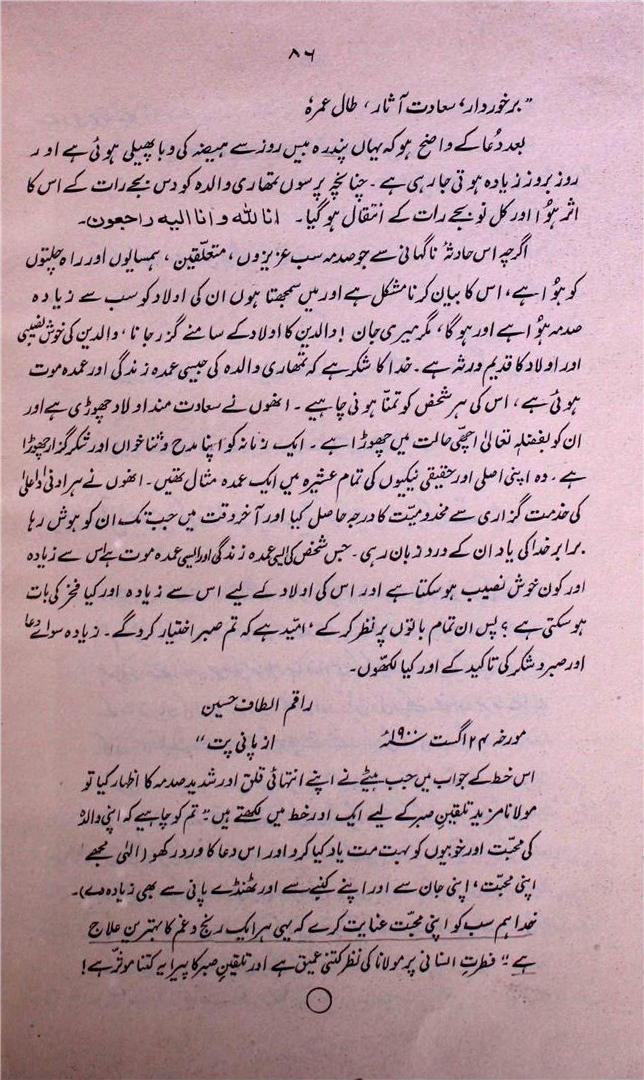 ۸۶
"برخوردار، سعادت آثار، طال عمرہٗ
بعد دُعا کے واضح ہو کہ یہاں پندرہ بیس روز سے ہیضہ کی وبا پھیلی ہوئی ہے اور
روز بروز زیادہ ہوتی جا رہی ہے۔ چنانچہ پرسوں تمھاری والدہ کو دس بجے رات کے اس کا
اثر ہُوا اور کل نو بجے رات کے انتقال ہو گیا۔ انا للہ و انا الیہ راجعون۔
اگرچہ اس حادثۂ ناگہانی سے جو صدمہ سب عزیزوں، متعلّقین، ہمسایوں اور راہ چلتوں
کو ہُوا ہے، اس کا بیان کرنا مشکل ہے اور میں سمجھتا ہوں ان کی اولاد کو سب سے زیادہ
صدمہ ہُوا ہے اور ہو گا، مگر میری جان! والدین کا اولاد کے سامنے گزر جانا، والدین کی خوش نصیبی
اور اولاد کا قدیم ورثہ ہے۔ خدا کا شکر ہے کہ تمُھاری والدہ کی جیسی عمدہ زندگی اور عمدہ موت
ہوئی ہے، اس کی ہر شخص کو تمنّا ہونی چاہیے۔ انھوں نے سعادت مند اولاد چھوڑی ہے اور
ان کو بفضلہٖ تعالیٰ اچھّی حالت میں چھوڑا ہے۔ ایک زمانہ کو اپنا مدح و ثنا خواں اور شکر گزار چھوڑا
ہے۔ وہ اپنی اصلی اور حقیقی نیکیوں کی تمام عشیرہ میں ایک عمدہ مثال تھیں۔ انھوں نے ہر ادنیٰ و اعلیٰ
کی خدمت گزاری سے مخدومیّت کا درجہ حاصل کیا اور آخر وقت میں جب تک ان کو ہوش رہا
برابر خدا کی یاد ان کے ورد زبان رہی۔ جس شخص کی ایسی عمدہ زندگی اور ایسی عمدہ موت ہو اس سے زیادہ
اور کون خوش نصیب ہو سکتا ہے اور اس کی اولاد کے لیے اس سے زیادہ اور کیا فخر کی بات
ہو سکتی ہے؟ پس ان تمام باتوں پر نظر کر کے، امّید ہے کہ تم صبر اختیار کرو گے۔ زیادہ سوائے دعا
اور صبر و شکر کی تاکید کے اور کیا لکھّوں۔
راقم الطاف حسین
مورخہ ۲۴ اگست ۱۹۰۰ء از پانی پت"
اس خط کے جواب میں جب بیٹے نے اپنے انتہائی قلق اور شدید صدمہ کا اظہار کیا تو
مولانا مزید تلقینِ صبر کے لیے ایک اور خط میں لکھتے ہیں: "تم کو چاہیے کہ اپنی والدہ
کی محبّت اور خوبیوں کو بہت مت یاد کیا کرو اور اس دعا کا ورد رکھو (الٰہی مجھے
اپنی محبّت، اپنی جان سے اور اپنے کنبے سے اور ٹھنڈے پانی سے بھی زیادہ دے)۔
خدا ہم سب کو اپنی محبّت عنایت کرے کہ یہی ہر ایک رنج و غم کا بہترین علاج
ہے" فطرتِ انسانی پر مولانا کی نظر کتنی عمیق ہے اور تلقینِ صبر کا پیرایہ کتنا موثّر ہے!